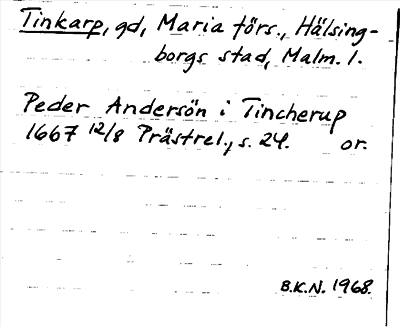 Tinkarp, gd, Maria förs., Hälsing-
borgs stad, Malm. l.
Peder Andersön i Tincherup
1667 12/8 Prästrel., s. 24. or.
B.K.N. 1968.